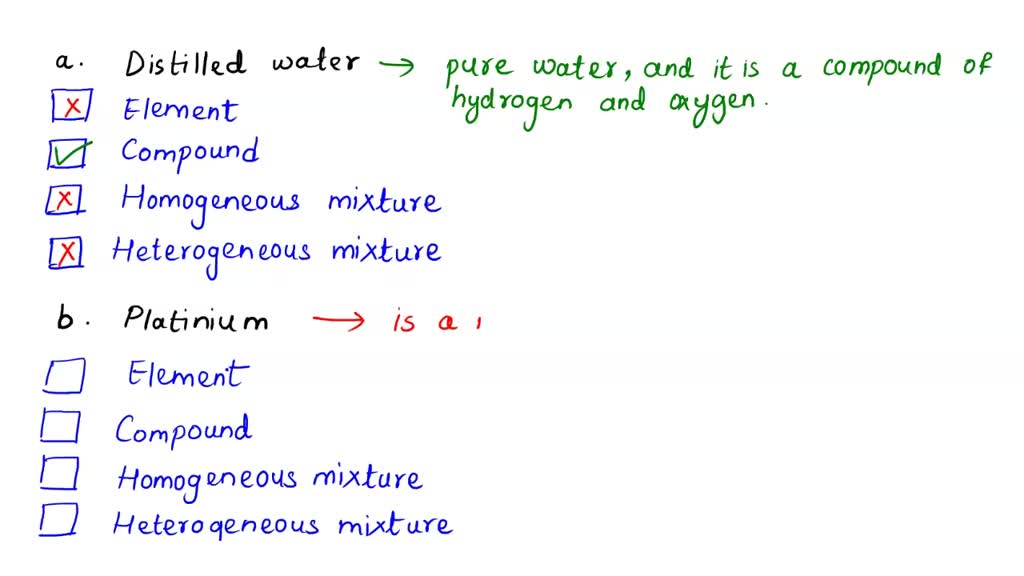 a. Distilled water → pure water, and it is a compound of
hydrogen and oxygen.
x Element
✓ Compound
x Homogeneous mixture
x Heterogeneous mixture
b. Platinium → is a
Element
Compound
Homogeneous mixture
Heterogeneous mixture